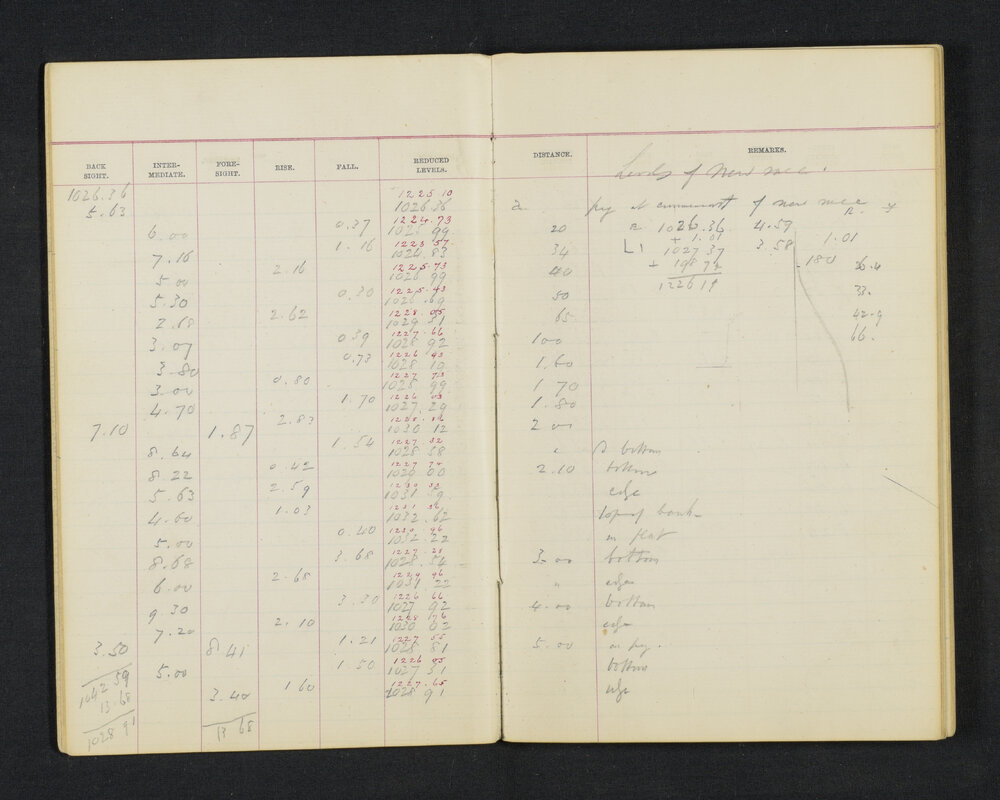 BACK SIGHT. INTER- MEDIATE. FORE- SIGHT. RISE. FALL. REDUCED LEVELS. DISTANCE. REMARKS.
Levels of New race.
1026.36 1225.10
5.63 1026 36 peg at of new race
6.00 0.37 1224.73 1025 99 20 1026.36 4.59
7.16 1.16 1223 57 1024.83 34 L1 1027 37 3.58 1.01
5.00 2.16 1225.73 1026 99 40 180
5.30 0.30 1225.43 1026.69 50 1226 19 33.
2.68 2.62 1228.05 1029 31 65 42.9
3.07 0.39 1227.66 1028 92 100 66.
3.80 0.73 1226 93 1028 19 1.60
3.00 0.80 1227 73 1028 99 1.70
4.70 1.70 1226 03 1027.29 1.80
7.10 1.87 2.83 1030 12 2 00
8.64 1.54 1227 32 1028 58 bottom
8.22 0.42 1029 00 2.10 bottom
5.63 2.59 1031 59 edge
4.60 1.03 1032.62 top of bank
5.00 0.40 1230 96 1032.22 on flat
8.68 3.68 1227.28 1028.54 3.00 bottom
6.00 2.68 1229 96 1031.22 " edge
9.30 3.30 1226 66 1027 92 4.00 bottom
7.20 2.10 1030 02 edge
3.50 8.41 1.21 1227 55 1028 81 5.00 on peg.
5.00 1.50 1226 05 1027 31 bottom
3.40 1 60 1227.65 1028 91 edge
1042 59
13.68
1028 91 13 68